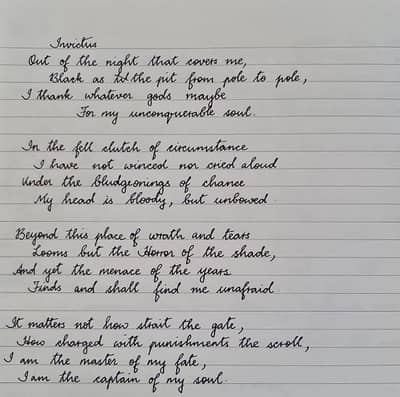 Invictus
Out of the night that covers me,
Black as the pit from pole to pole,
I thank whatever gods maybe
For my unconquerable soul.
In the fell clutch of circumstance
I have not winced nor cried aloud
Under the bludgeonings of chance
My head is bloody, but unbowed.
Beyond this place of wrath and tears
Looms but the Horror of the shade,
And yet the menace of the years
Finds and shall find me unafraid
It matters not how strait the gate,
How charged with punishments the scroll,
I am the master of my fate,
I am the captain of my soul.